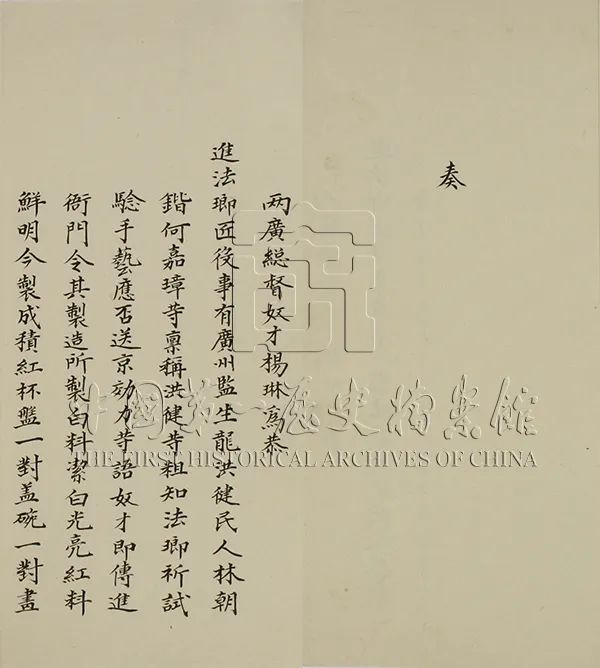 奏
两廣総督奴才楊琳爲恭
進法瑯匠役事有廣州監生龍洪健民人林朝
鍇何嘉璋等稟稱洪健等粗知法瑯祈試
騐手藝應否送京効力等語奴才即傳進
衙門令其製造所製白料潔白光亮紅料
鮮明今製成積紅杯盤一對盖碗一對畫
中國第一歷史檔案館
THE FIRST HISTORICAL ARCHIVES OF CHINA